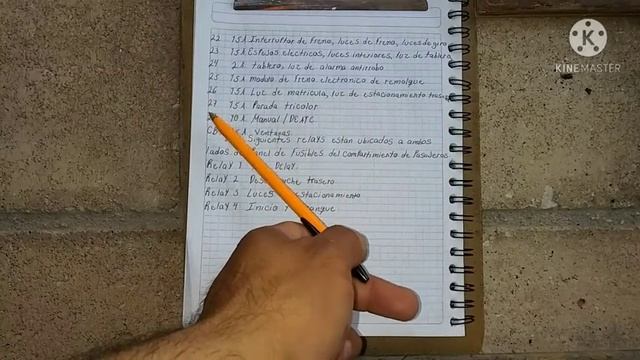 22 15A Interruptor de Freno, luces de Freno, luces de giro
23 15A Espejos electricos, luces interiores, luz de tablero
24 2A tablero, luz de alarma antirrobo
25 15A modulo de Freno electronico de remolque
26 15A Luz de matricula, luz de estacionamiento trasero
27 15A Parada tricolor
10A Manual/DEATC
CB A Ventanas
Siguientes relays estan ubicados a ambos
lados de Panel de Fusibles del Compartimiento de Pasajeros
Relay 1 Delay
Relay 2 trasero
Relay 3 Luces estacionamiento
Relay 4 Inicio
KINEMASTER